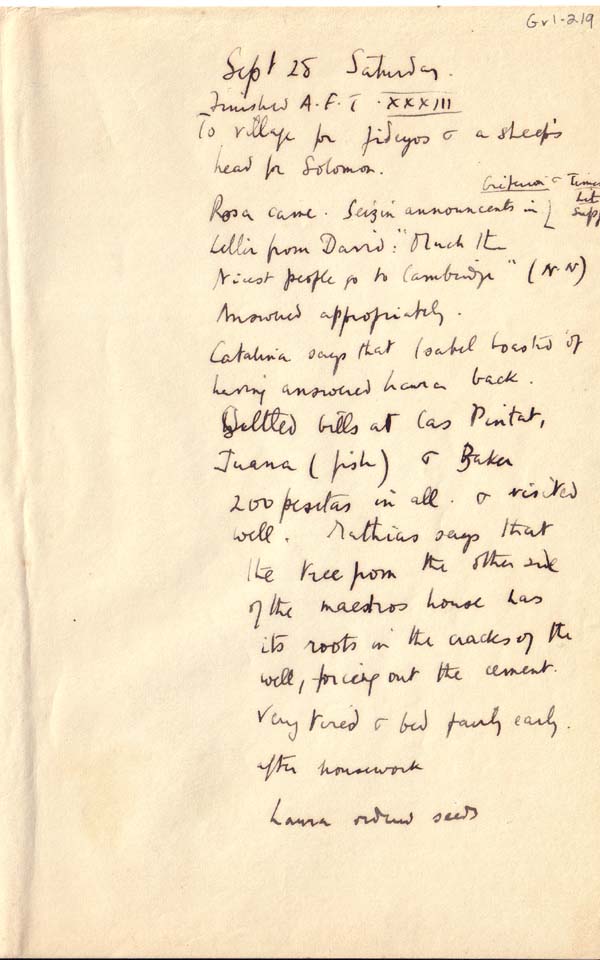 Gr1-219
Sept 28 Saturday.
Finished A.F.T. XXXIII
To village for fideyos & a sheep's
head for Solomon.
Criterion & Times
Rosa came. Seizin announcents in { Lit
Supp
Letter from David: "Much the
Nicest people go to Cambridge" (N.N)
Answered appropriately.
Catalina says that Isabel boasted of
having answered Laura back.
Settled bills at Cas Pintat,
Juana (fish) & Baker
200 pesetas in all. & visited
well. Mathias says that
the tree from the other side
of the maestros house has
its roots in the cracks of the
well, forcing out the cement.
Very tired & bed fairly early.
after housework
Laura ordered seeds